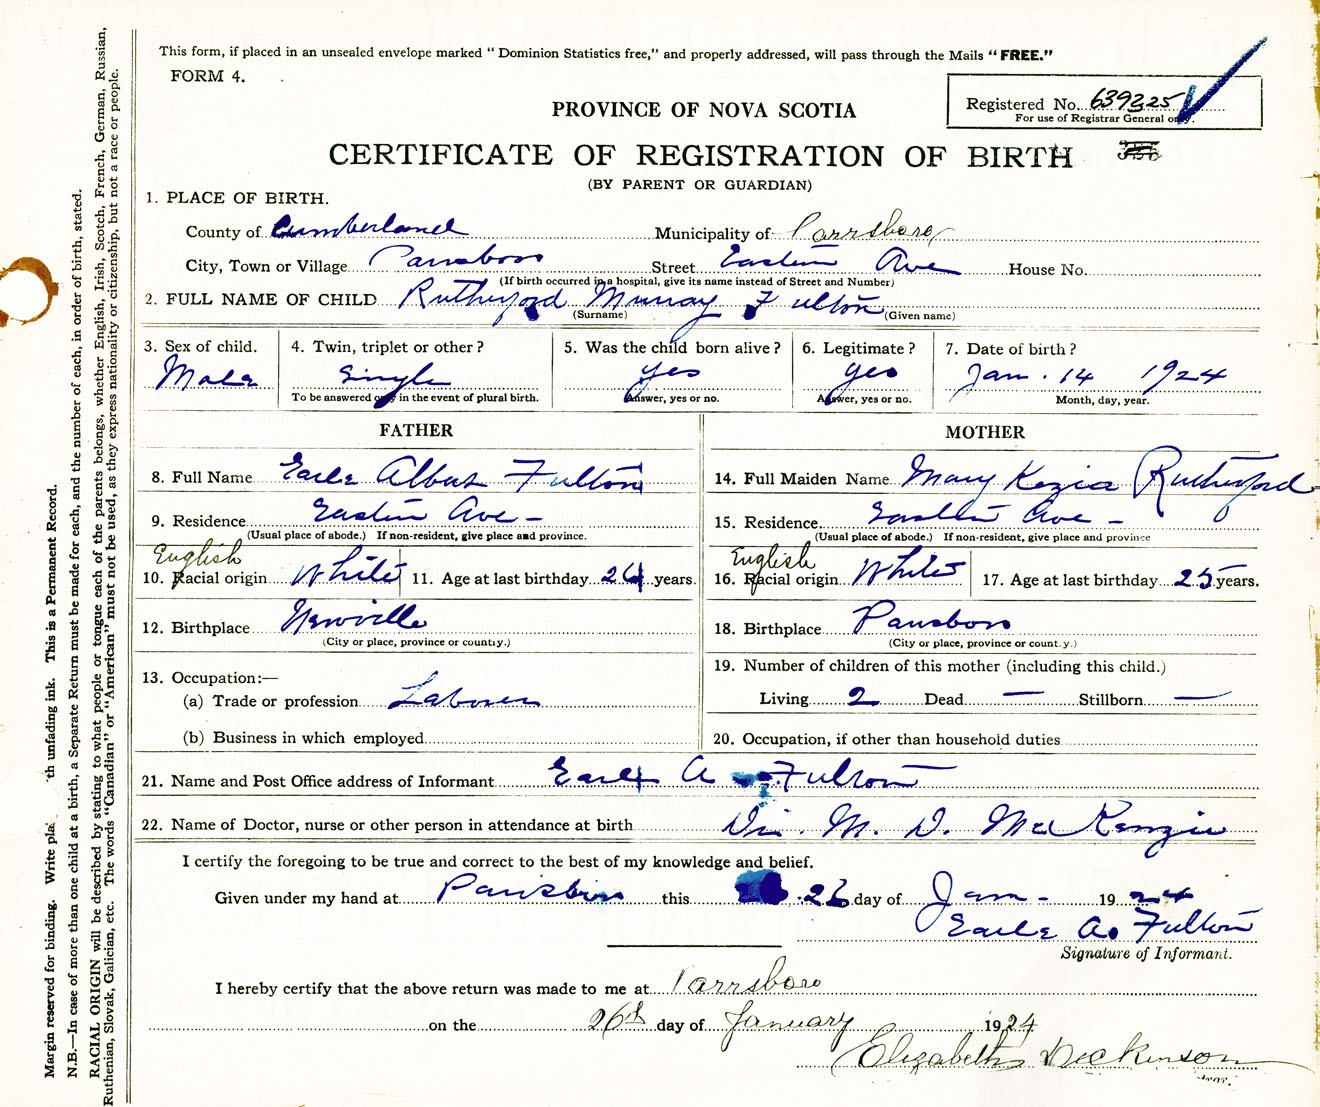 This form, if placed in an unsealed envelope marked “ Dominion Statistics free,” and properly addressed, will pass through the Mails “ FREE.”
FORM 4.
Registered No. 639325
For use of Registrar General only.
PROVINCE OF NOVA SCOTIA
CERTIFICATE OF REGISTRATION OF BIRTH
(BY PARENT OR GUARDIAN)
1. PLACE OF BIRTH.
County of Cumberland Municipality of Parrsboro
City, Town or Village Parrsboro Street Eastern Ave House No.
(If birth occurred in a hospital, give its name instead of Street and Number)
2. FULL NAME OF CHILD Rutherford Murray Fulton
(Surname) (Given name)
3. Sex of child. 4. Twin, triplet or other ? 5. Was the child born alive ? 6. Legitimate ? 7. Date of birth ?
Male Single yes yes Jan. 14 1924
To be answered only in the event of plural birth. Answer, yes or no. Answer, yes or no. Month, day, year.
FATHER MOTHER
8. Full Name Earle Albert Fulton 14. Full Maiden Name Mary Kezia Rutherford
9. Residence Eastern Ave - 15. Residence Eastern Ave -
(Usual place of abode.) If non-resident, give place and province. (Usual place of abode.) If non-resident, give place and province
English English
10. Racial origin White 11. Age at last birthday 24 years. 16. Racial origin White 17. Age at last birthday 25 years.
12. Birthplace Newville 18. Birthplace Parrsboro
(City or place, province or county.) (City or place, province or county.)
13. Occupation:— 19. Number of children of this mother (including this child.)
(a) Trade or profession Laborer Living 2 Dead — Stillborn —
(b) Business in which employed 20. Occupation, if other than household duties
21. Name and Post Office address of Informant Earle A Fulton
22. Name of Doctor, nurse or other person in attendance at birth Dr. M. D. MacKenzie
I certify the foregoing to be true and correct to the best of my knowledge and belief.
Given under my hand at Parrsboro this 26 day of Jan - 1924
Earle A. Fulton
Signature of Informant.
I hereby certify that the above return was made to me at Parrsboro
on the 26th day of January 1924
Elizabeth Dickinson
Margin reserved for binding. Write th unfading ink. This is a Permanent Record.
N.B.—In case of more than one child at a birth, a Separate Return must be made for each, and the number of each, in order of birth, stated.
RACIAL ORIGIN will be described by stating to what people or tongue each of the parents belongs, whether English, Irish, Scotch, French, German, Russian,
Ruthenian, Slovak, Galician, etc. The words “Canadian” or “American” must not be used, as they express nationality or citizenship, but not a race or people.